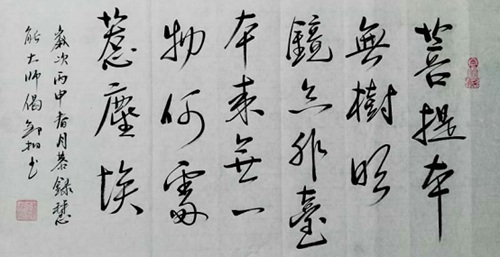 菩提本
無樹明
鏡亦非臺
本來無一
物何處
惹塵埃
歲次丙申春月恭錄慧
能大師偈 書